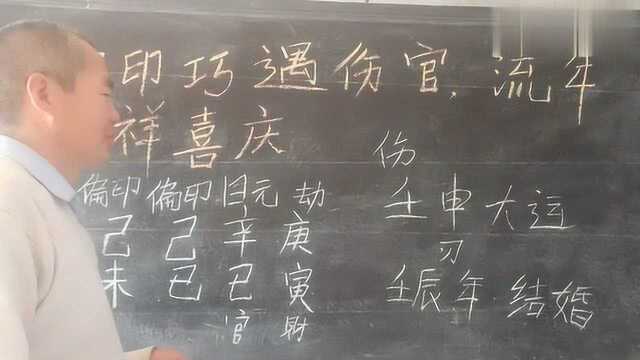 印巧遇伤官,流年
祥喜庆
偏印 偏印 日元 劫
己 己 辛 庚
未 巳 巳 寅
官 财
伤
壬申大运
刃
壬辰年结婚